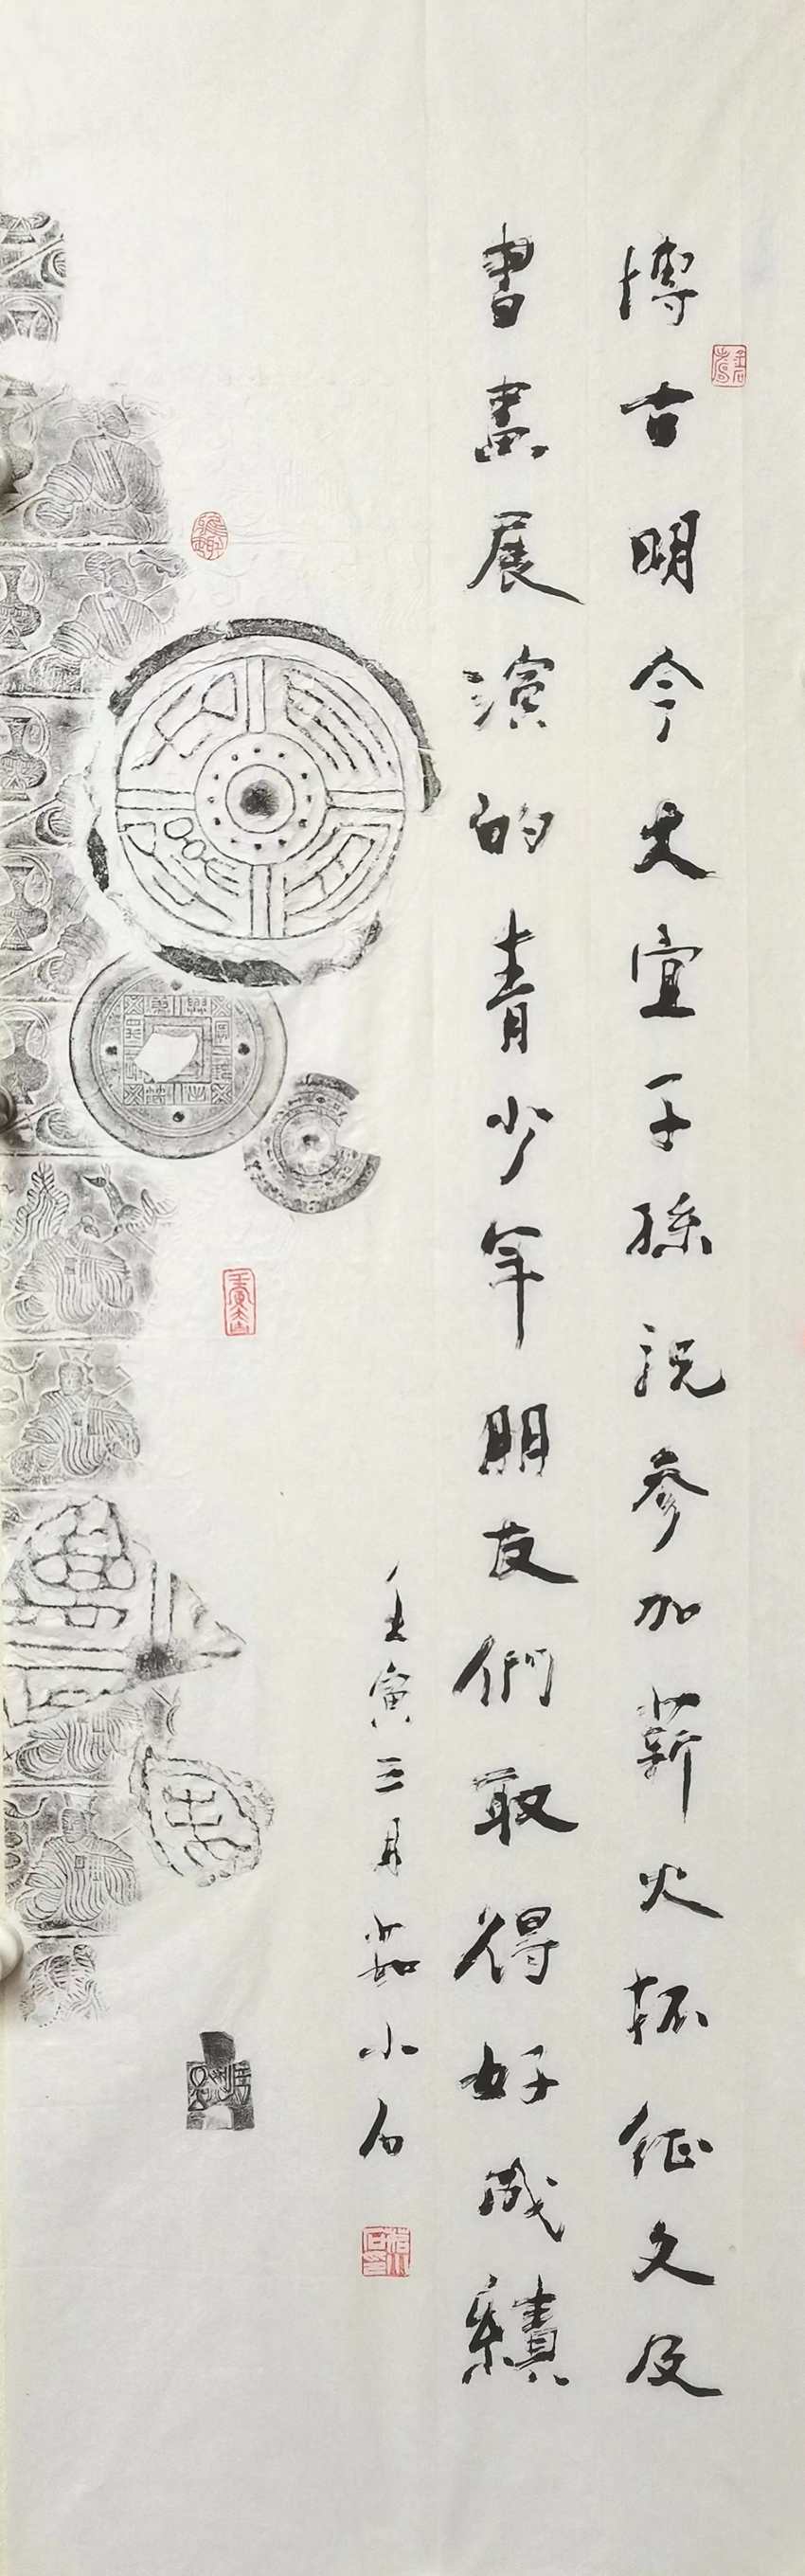 博古明今大宜子孫祝参加薪火杯征文及
書畫展演的青少年朋友們取得好成績
壬寅三月茹小石